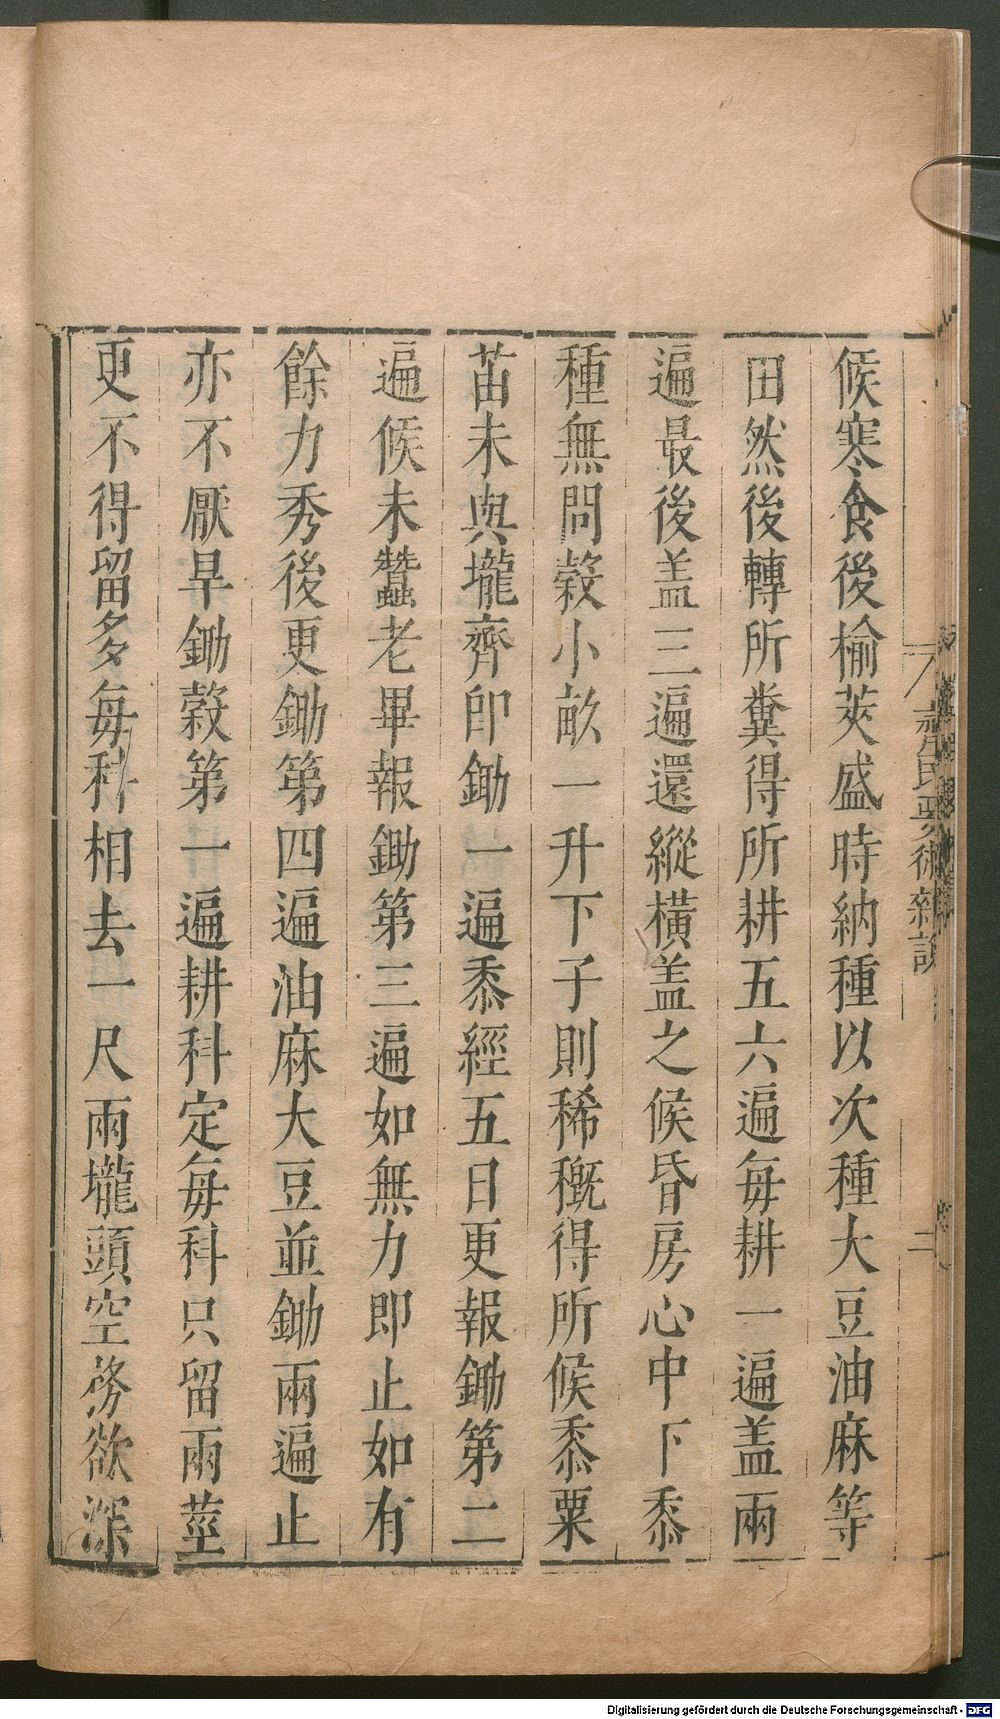 候寒食後榆莢盛時納種以次種大豆油麻等
田然後轉所糞得所耕五六遍每耕一遍盖兩
遍最後盖三遍還縱橫盖之候昏房心中下黍
種無問穀小畝一升下子則稀穊得所候黍粟
苗未與壠齊即鋤一遍黍經五日更報鋤第二
遍候未蠶老畢報鋤第三遍如無力即止如有
餘力秀後更鋤第四遍油麻大豆並鋤兩遍止
亦不厭早鋤穀第一遍耕科定每科只留兩莖
更不得留多每科相去一尺兩壠頭空務欲深
Digitalisierung gefördert durch die Deutsche Forschungsgemeinschaft - DFG